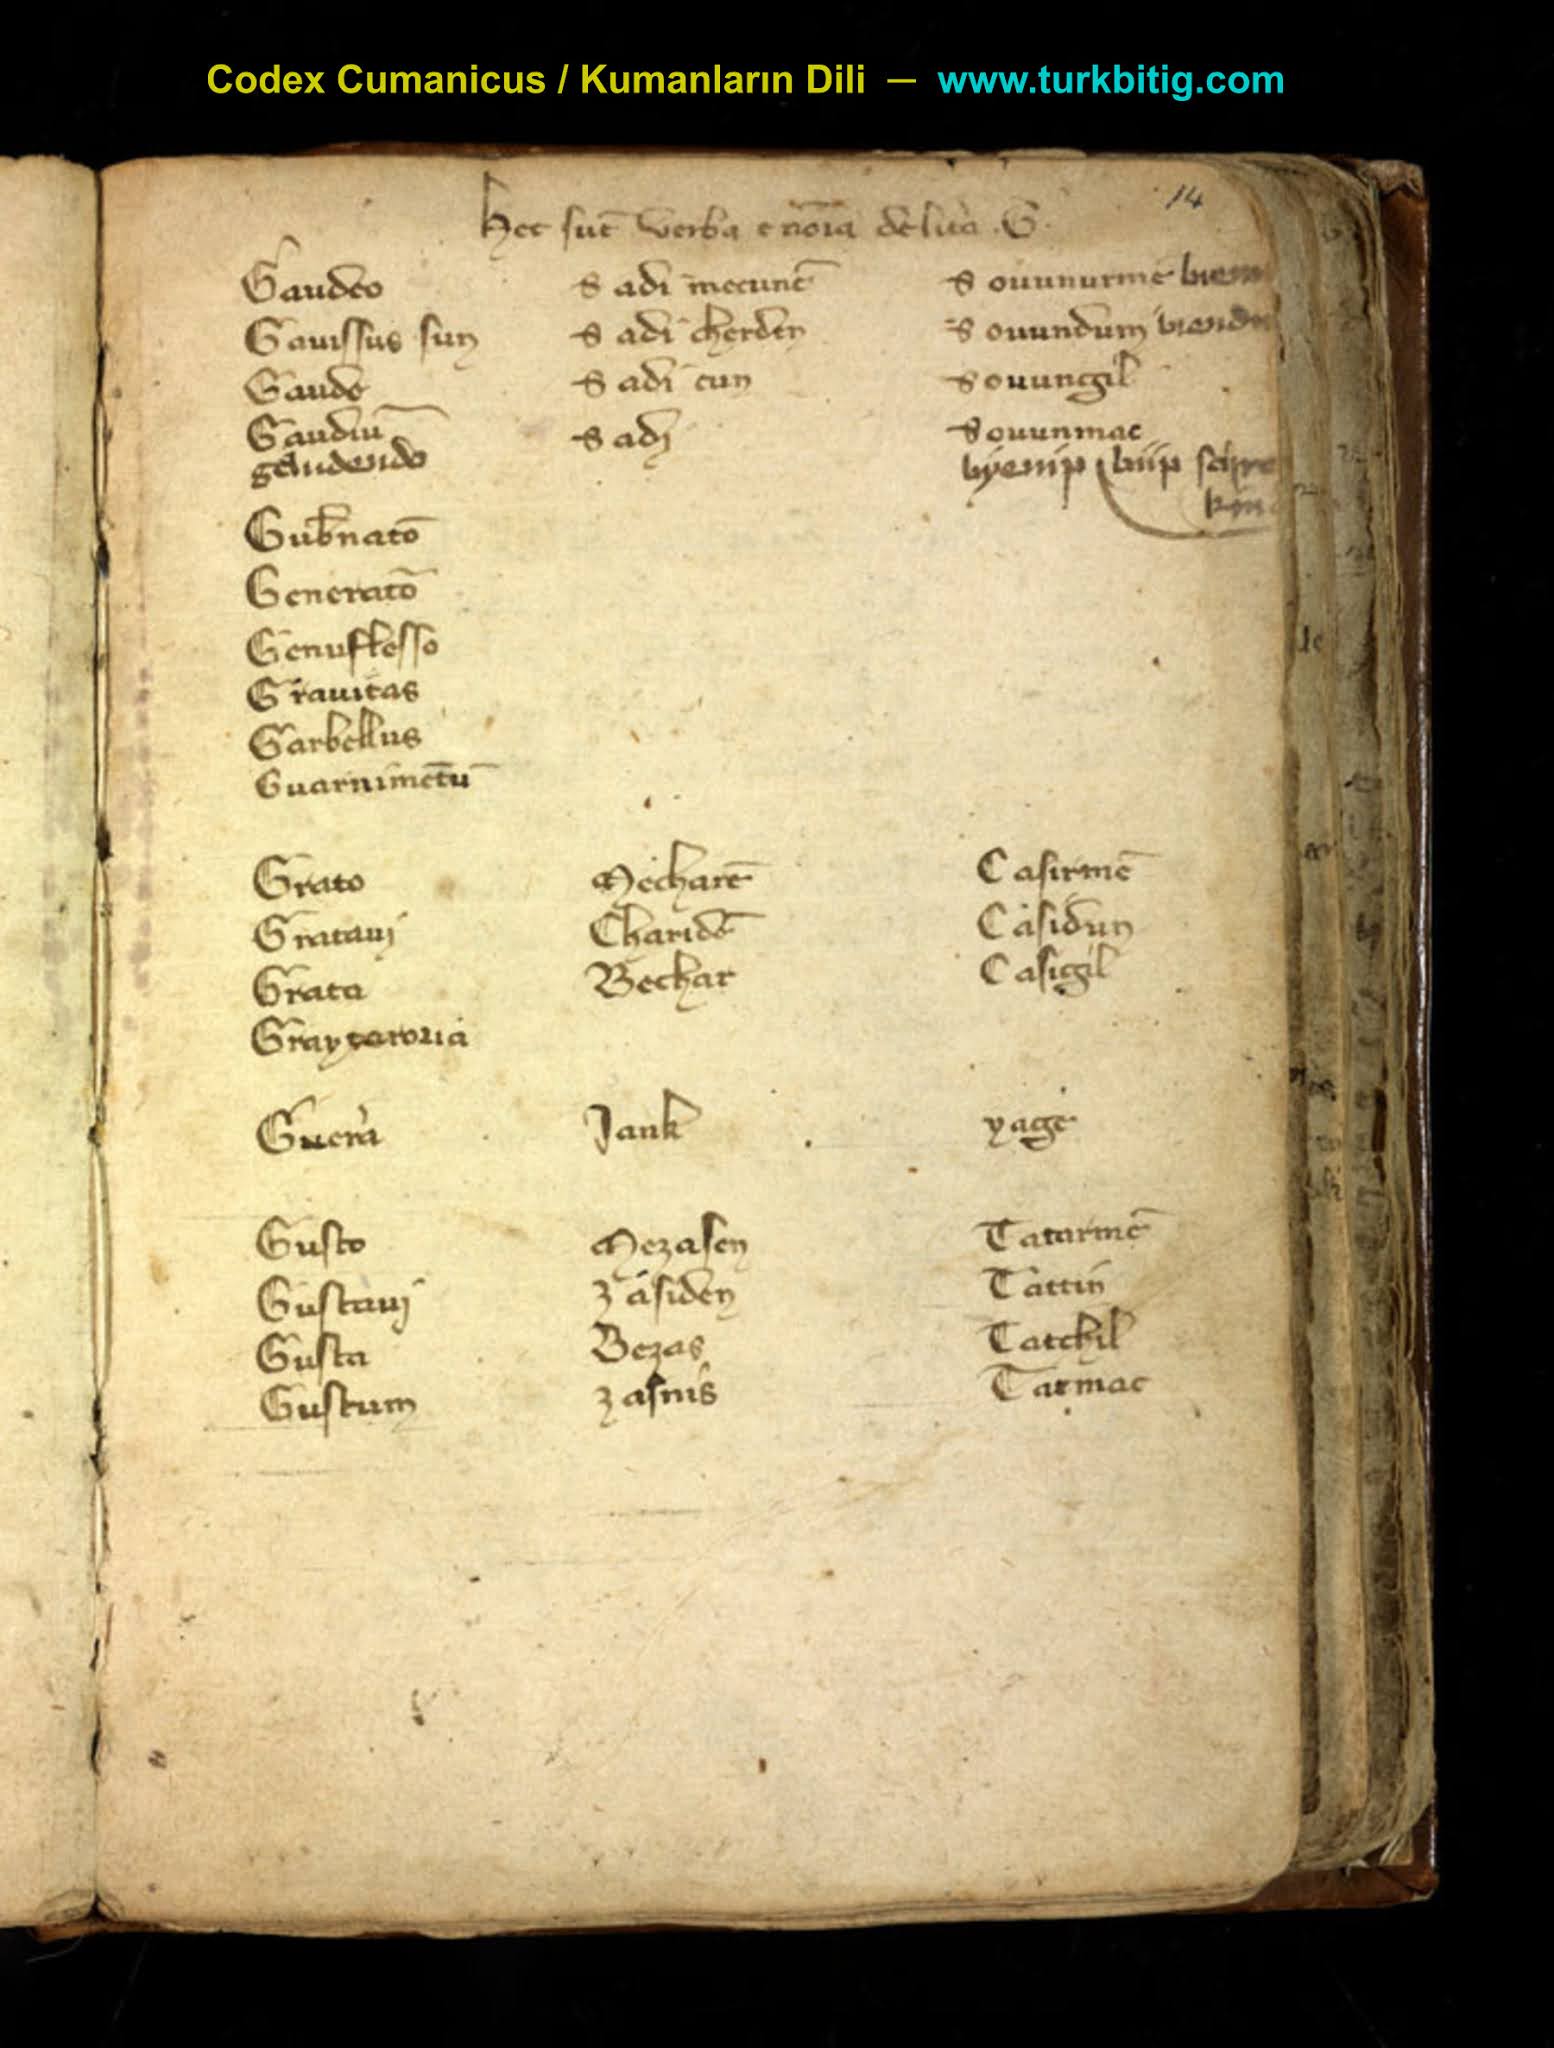 Codex Cumanicus / Kumanların Dili — www.turkbitig.com
14
Hec sūt verba e nōia de lit̄a .G.
Gaudeo S adi mecunē S ouunurmē
Gauissus sum S adi cherden S ouundum
Gaude S adi cun S ouungil
Gaudiū S adj S ouunmac
gaudendo byenip biip
Gub̄natō
Generatō
Genuflesso
Grauitas
Garbellus
Guarnimētū
Grato Mecharē Casirmē
Grataui Charidē Casidum
Grata Bechar Casigil
Guera Jank yage
Gusto Mezasen Tatarmē
Gustaui zasiden Tattin
Gusta Bezas Tatchil
Gustum zasnis Tatmac